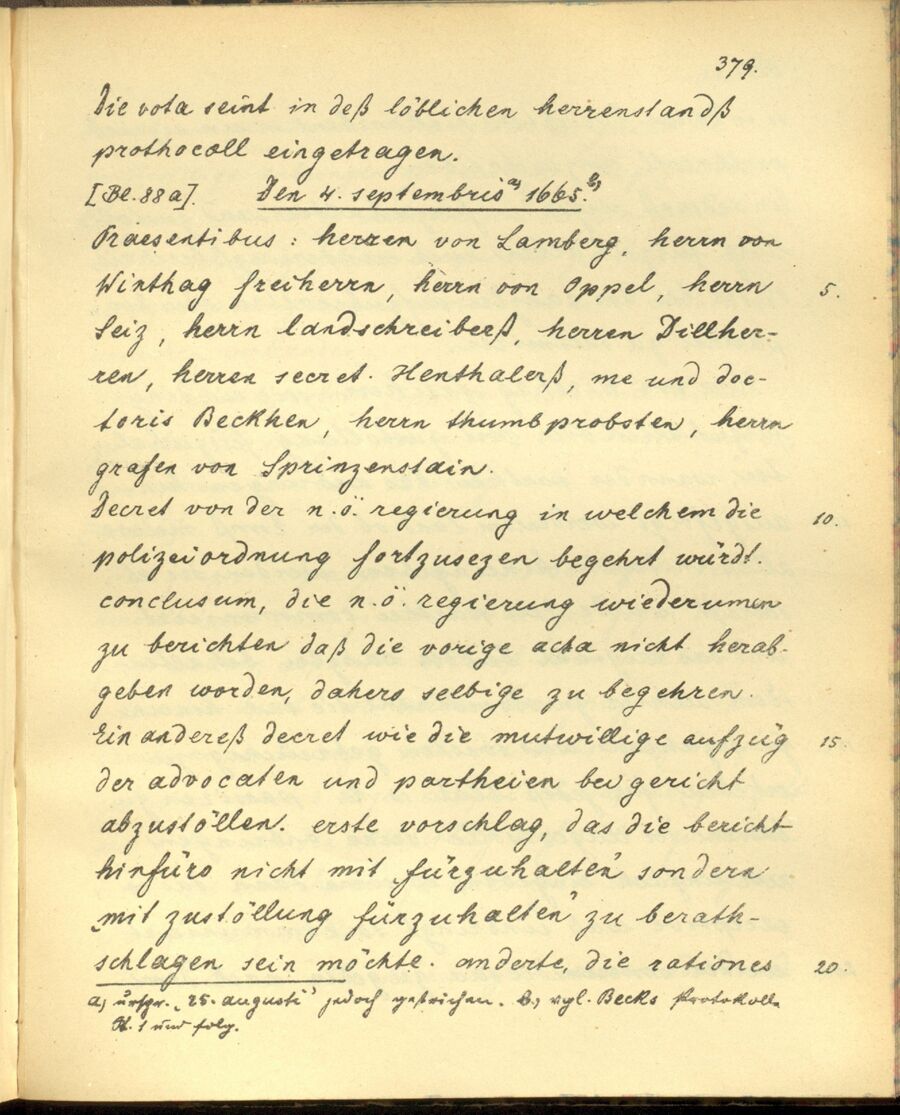 379.
Die vota seint in deß löblichen herrenstandß
prothocoll eingetragen.
[Bl. 88a]. Den 4. septembris a) 1665. b)
Praesentibus: herren von Lamberg, herrn von
Winthag freiherrn, herrn von Oppel, herrn 5.
Seiz, herrn landschreiberß, herren Dillher-
ren, herren secret. Henthalerß, me und doc-
toris Beckhen, herrn thumbprobsten, herrn
grafen von Sprinzenstain.
Decret von der n.ö. regierung in welchem die 10.
polizeiordnung fortzusezen begehrt würdt.
conclusum, die n.ö. regierung wiederumen
zu berichten daß die vorige acta nicht herab-
geben worden, dahero selbige zu begehren.
Ein andereß decret wie die mutwillige aufzüg 15.
der advocaten und partheien bei gericht
abzustöllen. erste vorschlag, das die bericht
hinfüro nicht mit „fürzuhalten" sondern
„mit zustöllung fürzuhalten" zu berath-
schlagen sein möchte. anderte, die rationes 20.
a) urspr. „25. augusti" jedoch gestrichen. b) vgl. Becks Protokolle
Bl. 1 und folg.